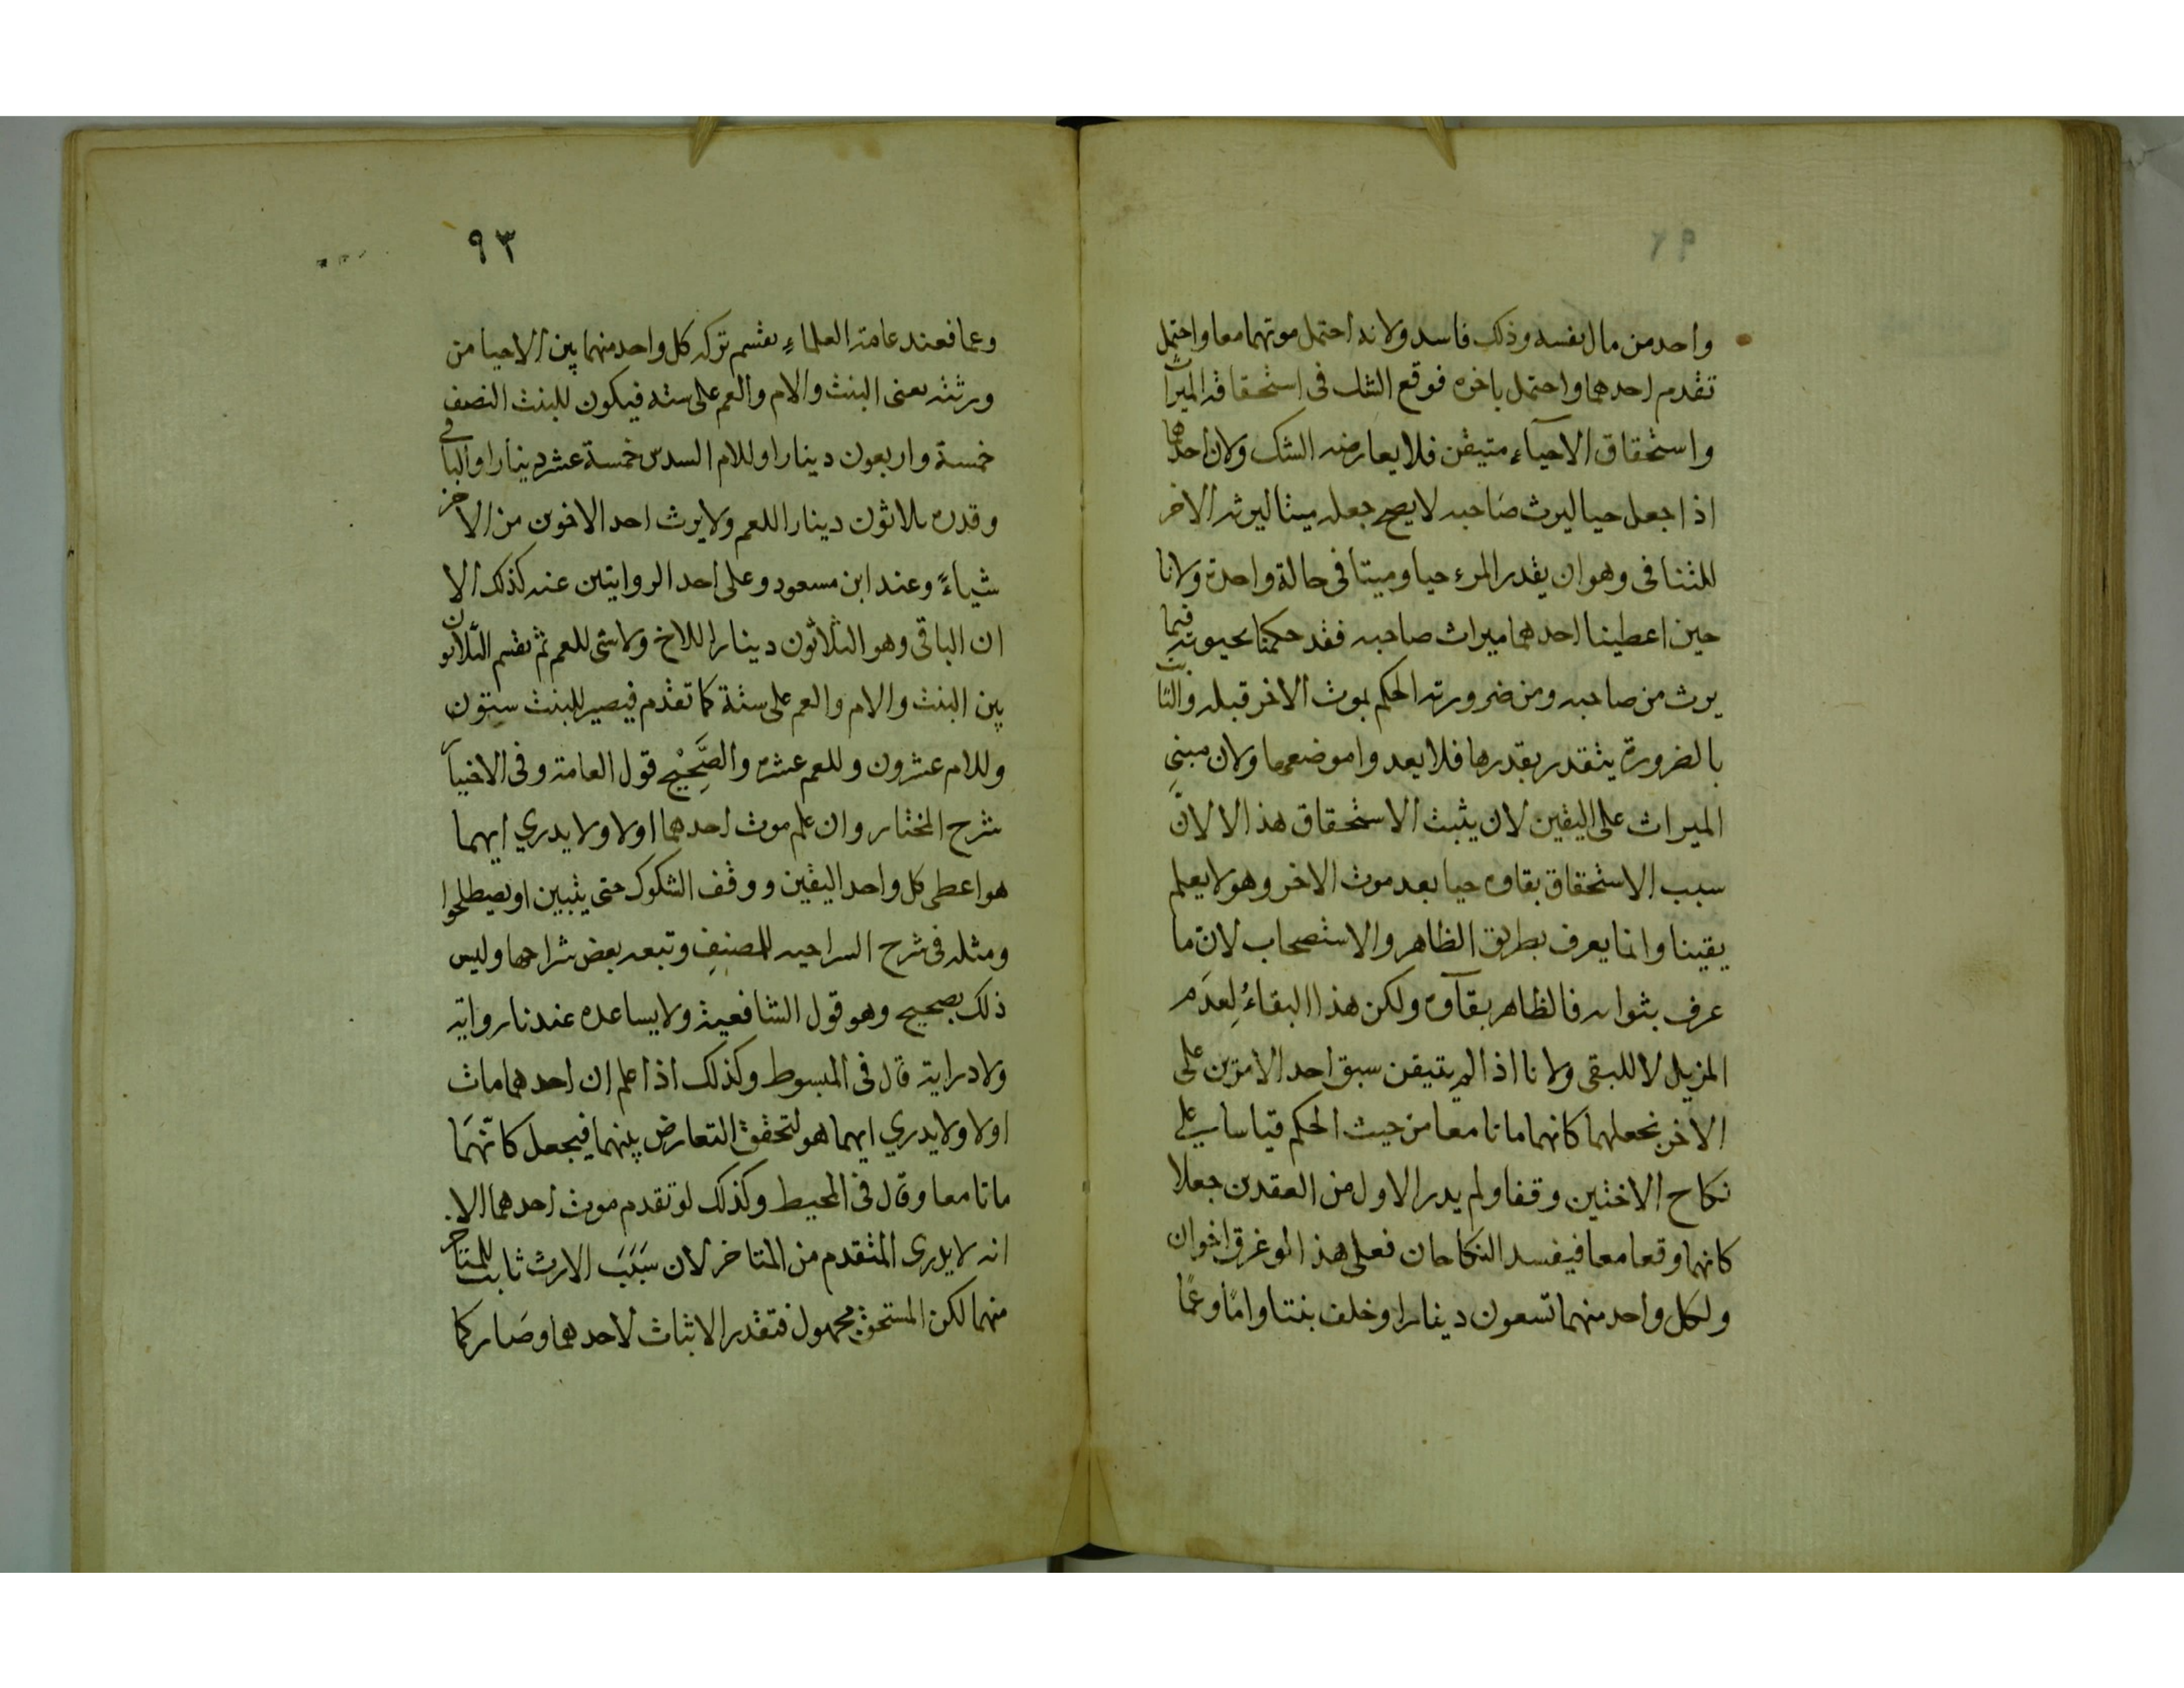 واحد من مال نفسه وذلك فاسد ولانه احتمل موتهما معا واحتمل
تقدم احدهما واحتمل باخره فوقع الشك فى استحقاقه الميراث
واستحقاق الاحيآء متيقن فلا يعارضه الشك ولان احدهما
اذا جعل حيا ليرث صاحبه لا يصح جعله ميتا ليرثه الاخر
للتنافى وهو ان يقدر المرء حيا وميتا فى حالة واحدة ولانا
حين اعطينا احدهما ميراث صاحبه فقد حكمنا بحيوته فيما
يرث من صاحبه ومن ضرورته الحكم بموت الاخر قبله والثابت
بالضرورة يتقدر بقدرها فلا يعدوا موضعها ولان مبنى
الميراث على اليقين لان يثبت الاستحقاق هذا الا لانّ
سبب الاستحقاق بقاوه حيا بعد موت الاخر وهو لا يعلم
يقينا وانما يعرف بطريق الظاهر والاستصحاب لانّ ما
عرف بثواته فالظاهر بقآوه ولكن هذا البقاءُ لِعدَم
المزيل لا للبقى ولانا اذا لم يتيقن سبق احد الامرين على
الاخر نجعلهما كانهما ماتا معا من حيث الحكم قياسا على
نكاح الاختين وقفا ولم يدر الاول من العقدين جعلا
كانهما وقعا معا فيفسد النكاحان فعلى هذا لو غرق اخوان
ولكل واحد منهما تسعون دينارا وخلف بنتا وامّا وعمّا
٩٣
وعما فعند عامة العلماءِ يقسم تركه كل واحد منهما بين الاحيا من
ورثته يعنى البنت والام والعم على سته فيكون للبنت النصف
خمسة واربعون دينارا وللام السدس خمسة عشر دينارا والباقى
وقدره ثلاثون دينارا للعم ولا يرث احد الاخوين من الاخر
شياءً وعند ابن مسعود وعلى احد الروايتين عنه كذلك الا
ان الباقى وهو الثلاثون دينارا للاخ ولا شى للعم ثم يقسم الثلاثون
بين البنت والام والعم على ستة كما تقدم فيصير للبنت ستون
وللام عشرون وللعم عشره والصَّحِيْح قول العامة وفى الاختيار
شرح المختار وان علم موت احدهما اولا ولا يدري ايهما
هو اعطى كل واحد اليقين ووقف الشكوك حتى يتبين او يصطلحوا
ومثله فى شرح السراجيه للمصنِفِ وتبعه بعض شراحها وليس
ذلك بصحيح وهو قول الشافعية ولا يساعده عندنا رواية
ولا دراية قال فى المبسوط وكذلك اذا علم ان احدهما مات
اولا ولا يدري ايهما هو لتحقق التعارض بينهما فيجعل كانّهمَا
ماتا معا وقال فى المحيط وكذلك لو تقدم موت احدهما الا
انه لا يدرى المتقدم من المتاخر لان سَبَبَ الارث ثابت للمتاخر
منهما لكن المستحق مجهول فتقدر الاثبات لاحدهما وصَار كما